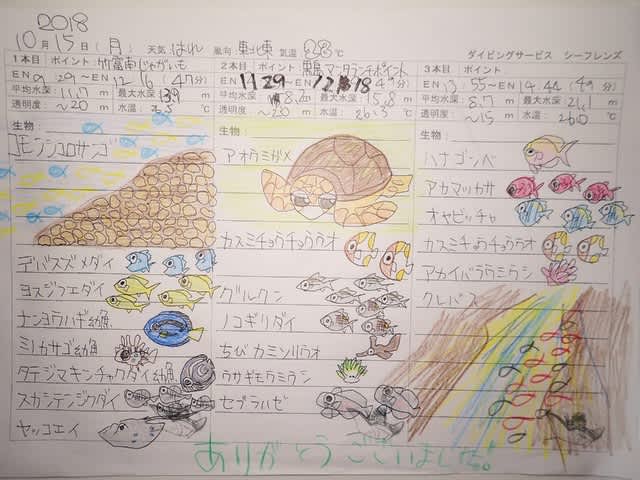 2018
10月15日(月) 天気 はれ 風向 東北東 気温 28℃
ダイビングサービス シーフレンズ
1本目 ポイント 竹富南じゃがいも
EN 9:29〜EN 12:16 (47分)
平均水深 11.7m 最大水深 m
透明度: 〜20m 水温: ℃
生物:
コモンシコロサンゴ
デバスズメダイ
ヨスジフエダイ
ナンヨウハギ幼魚
ミノカサゴ幼魚
タテジマキンチャクダイ幼魚
スカシテンジクダイ
ヤッコエイ
2本目 ポイント 黒島マンタランチポイント
EN 11:29〜EN 12:18 (49分)
平均水深 8.2m 最大水深 15.8m
透明度: 〜20m 水温: ℃
生物:
アオウミガメ
カスミチョウチョウウオ
グルクン
ノコギリダイ
ちび カミソリウオ
ウサギモウミウシ
セブラハゼ
3本目 ポイント
EN 13:55〜EN 14:44 (49分)
平均水深 8.7m 最大水深 21.1m
透明度: 〜15m 水温: ℃
生物:
ハナゴンベ
アカマツカサ
オヤビッチャ
カスミチョウチョウウオ
アカイバラウミウシ
クレバス
ありがとうございました!